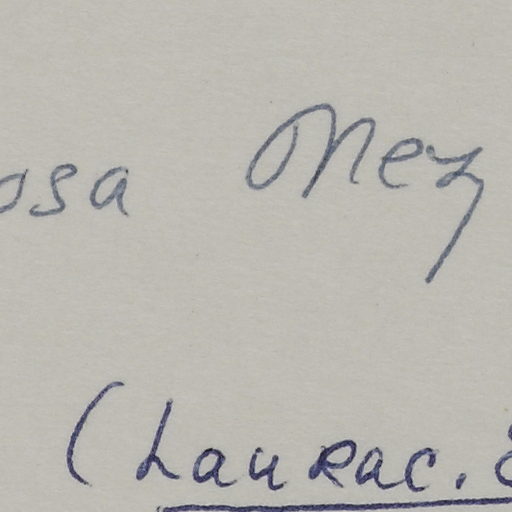 osa Mey
(Laurac.